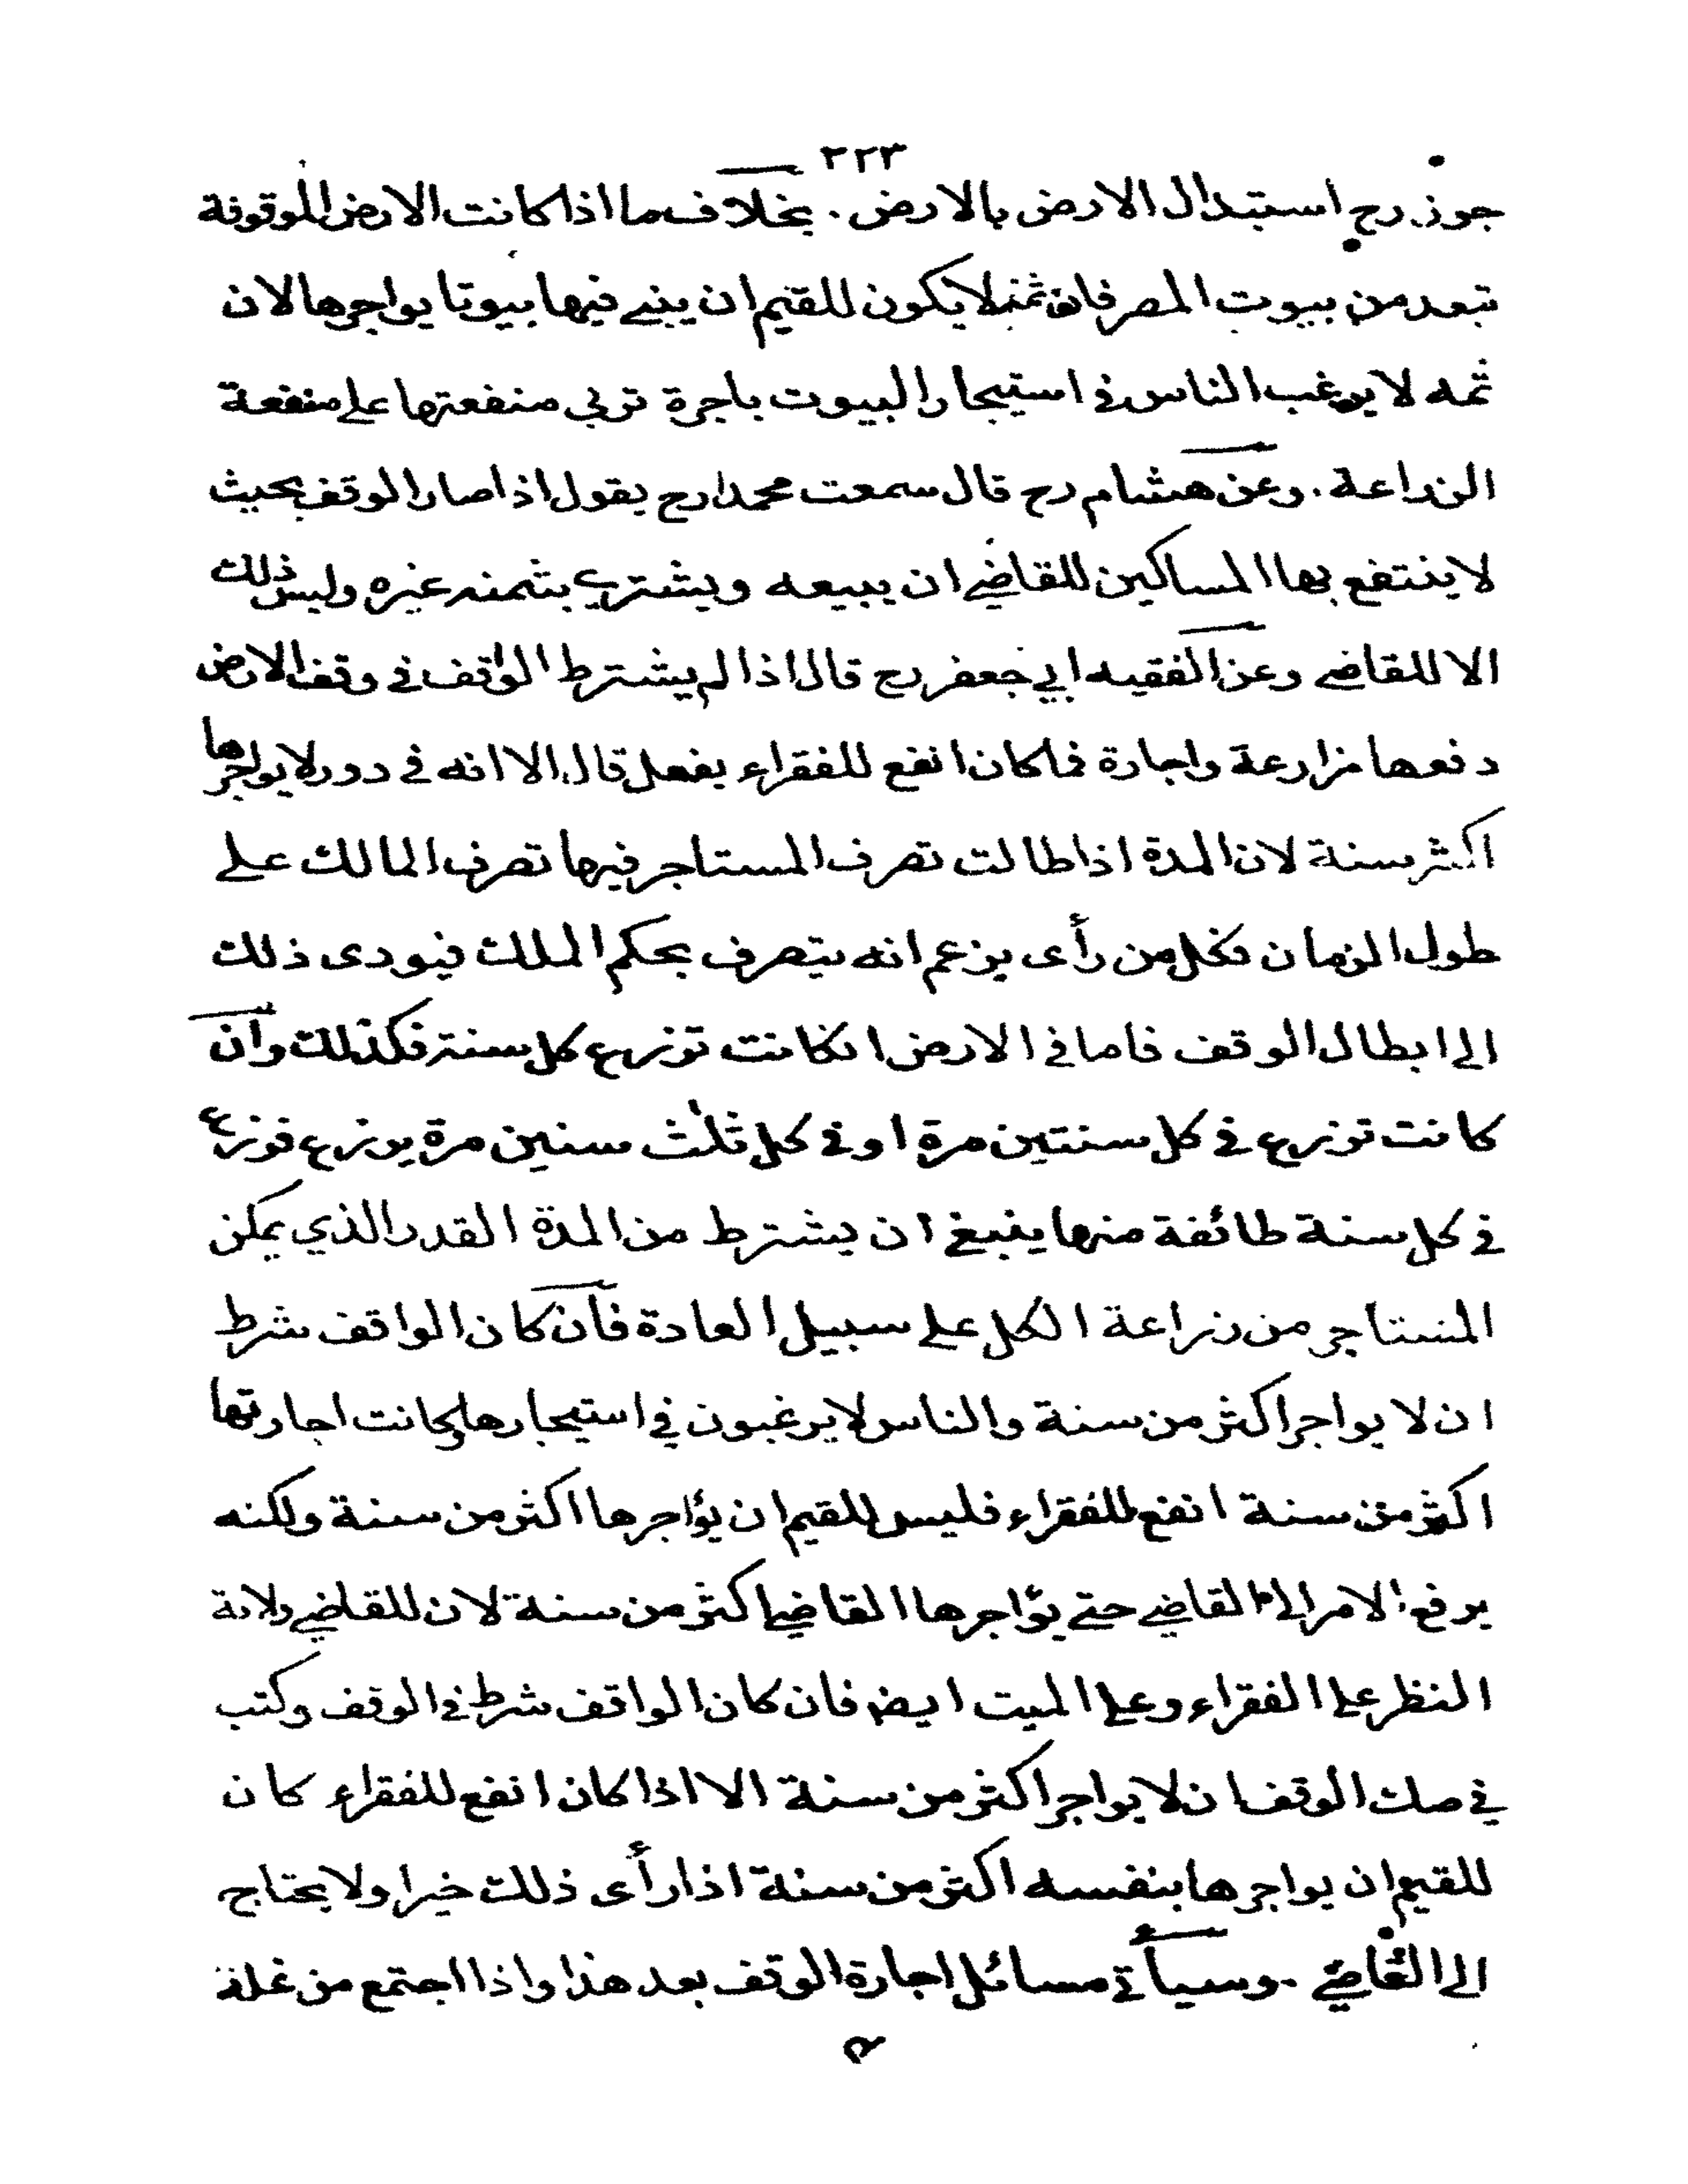 ٣٢٣
جوز رح استبدال الارض بالارض . بخلاف ما اذا كانت الارض الموقوفة
تبعد من بيوت المصر فان ثمه لا يكون للقيم ان يبني فيها بيوتا يواجرها لان
ثمه لا يرغب الناس في استيجار البيوت باجرة تربي منفعتها على منفعة
الزراعة . وعن هشام رح قال سمعت محمدا رح يقول اذا صار الوقف بحيث
لا ينتفع بها المساكين للقاضي ان يبيعه ويشتري بثمنه غيره وليس ذلك
الا للقاضي وعن الفقيه ابي جعفر رح قال اذا لم يشترط الواقف في وقف الارض
دفعها مزارعة واجارة فما كان انفع للفقراء يفعل قال الا انه في دور لا يواجرها
اكثر سنة لان المدة اذا طالت تصرف المستاجر فيها تصرف المالك على
طول الزمان فكل من رأى يزعم انه يتصرف بحكم الملك فيودى ذلك
الى ابطال الوقف فاما في الارض ان كانت تزرع كل سنة فكذلك وان
كانت تزرع في كل سنتين مرة او في كل ثلث سنين مرة يوزع فوزع
في كل سنة طائفة منها ينبغي ان يشترط من المدة القدر الذي يمكن
المستاجر من زراعة الكل على سبيل العادة فان كان الواقف شرط
ان لا يواجر اكثر من سنة والناس لا يرغبون في استيجارها وكانت اجارتها
اكثر من سنة انفع للفقراء فليس للقيم ان يؤاجرها اكثر من سنة ولكنه
يرفع الامر الى القاضي حتى يؤاجرها القاضي اكثر من سنة لان للقاضي ولاية
النظر على الفقراء وعلى الميت ايضا فان كان الواقف شرط في الوقف وكتب
في صك الوقف ان لا يواجر اكثر من سنة الا اذا كان انفع للفقراء كان
للقيم ان يواجرها بنفسه اكثر من سنة اذا رأى ذلك خيرا ولا يحتاج
الى القاضي . وسيأتي مسائل اجارة الوقف بعد هذا واذا اجتمع من غلة